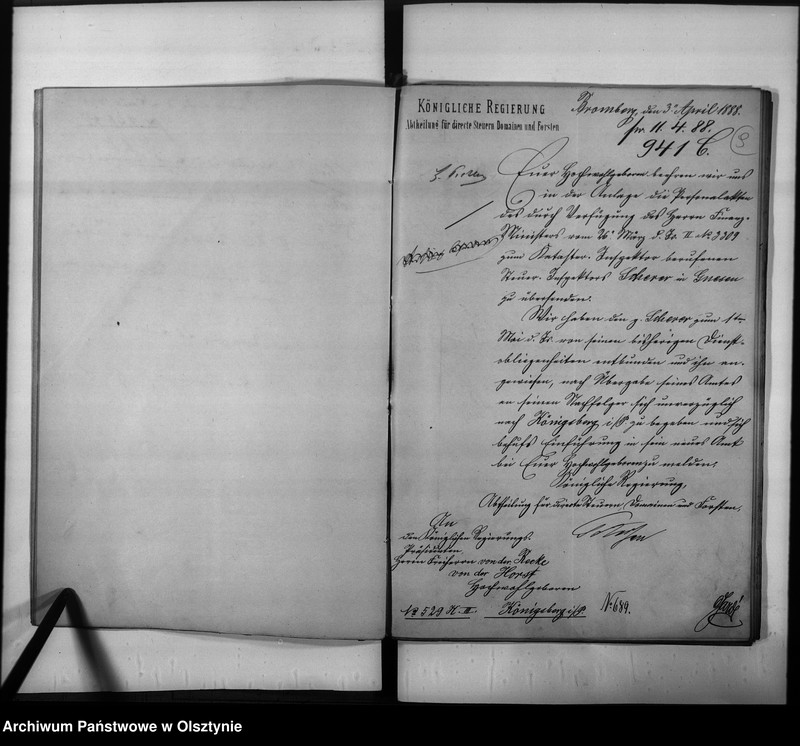 KÖNIGLICHE REGIERUNG
Abtheilung für directe Steuern Domainen und Forsten
Bromberg, den 3ten April 1888.
pr. 11. 4. 88.
941 C.
Euer Hochwohlgeboren beehren wir uns
in der Anlage die Personalakten
des durch Verfügung des Herrn Finanz-
Ministers vom 26. März d. Js. II No 3309
zum Kataster-Inspektor berufenen
Steuer-Inspektors Scherer in Gnesen
zu übersenden.
Wir haben den p. Scherer zum 1ten
Mai d. Js. von seinen bisherigen Dienst-
obliegenheiten entbunden und ihn an-
gewiesen, nach Übergabe seines Amtes
an seinen Nachfolger sich unverzüglich
nach Königsberg i/P. zu begeben und sich
behufs Einführung in sein neues Amt
bei Euer Hochwohlgeboren zu melden.
Königliche Regierung,
Abtheilung für directe Steuern, Domainen und Forsten.
An
den Königlichen Regierungs-
Präsidenten
Herrn Freiherrn von der Recke
von der Horst
Hochwohlgeboren
No 529 K. II
Königsberg i/P.
No 689.
Archiwum Państwowe w Olsztynie